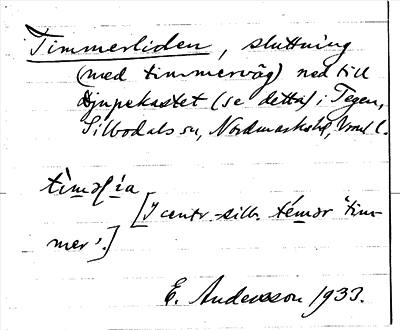 Timmerliden, sluttning
(med timmerväg) ned till
Djupekastet (se detta) i Tegen,
Silbodals sn, Nordmarks hd, Vrml l.
tìmə(ía
[I centr.-silb. témər "tim-
mer".]
E. Andersson 1933.